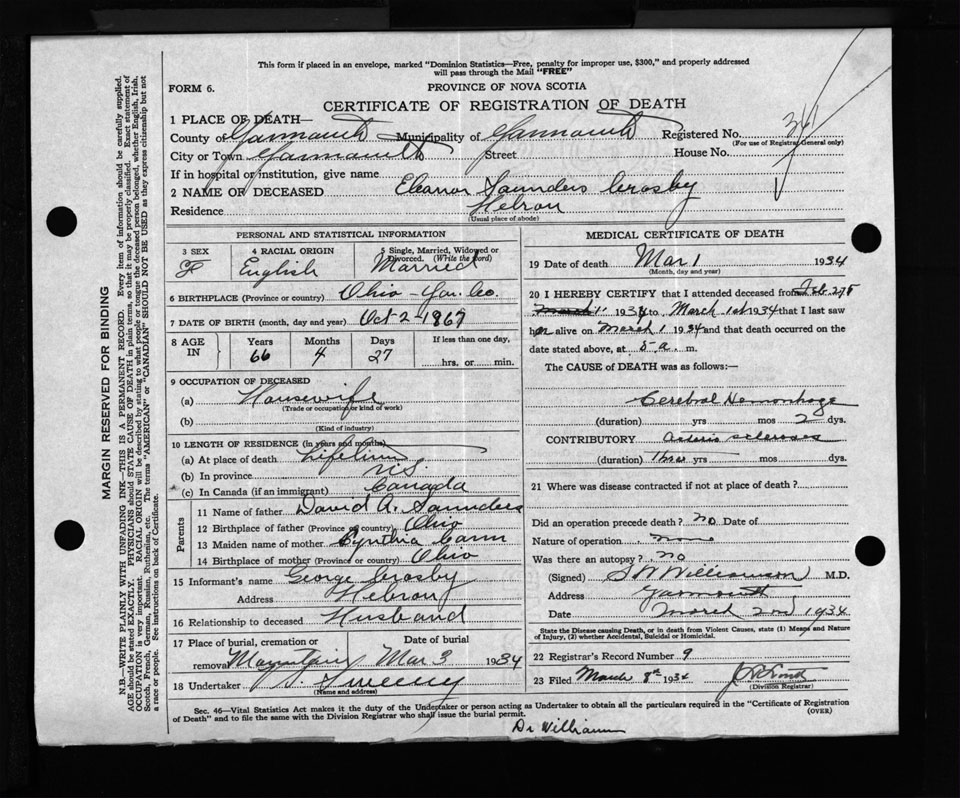 This form if placed in an envelope, marked "Dominion Statistics—Free, penalty for improper use, $300," and properly addressed
will pass through the Mail "FREE"
FORM 6.
PROVINCE OF NOVA SCOTIA
CERTIFICATE OF REGISTRATION OF DEATH
1 PLACE OF DEATH—
County of Yarmouth Municipality of Yarmouth Registered No. 361
(For use of Registrar General only)
City or Town Yarmouth Street House No.
If in hospital or institution, give name
2 NAME OF DECEASED Eleanor Saunders Crosby
Residence Hebron
(Usual place of abode)
PERSONAL AND STATISTICAL INFORMATION
3 SEX F
4 RACIAL ORIGIN English
5 Single, Married, Widowed or Divorced. (Write the word) Married
6 BIRTHPLACE (Province or country) Ohio - Yar. Co.
7 DATE OF BIRTH (month, day and year) Oct-2-1867
8 AGE IN Years 66 Months 4 Days 27 If less than one day, hrs. or min.
9 OCCUPATION OF DECEASED
(a) Housewife
(Trade or occupation or kind of work)
(b)
(Kind of industry)
10 LENGTH OF RESIDENCE (in years and months)
(a) At place of death Lifetime
(b) In province N.S.
(c) In Canada (if an immigrant) Canada
Parents
11 Name of father David A. Saunders
12 Birthplace of father (Province or country) Ohio
13 Maiden name of mother Cynthia Cann
14 Birthplace of mother (Province or country) Ohio
15 Informant's name George Crosby
Address Hebron
16 Relationship to deceased Husband
17 Place of burial, cremation or removal Date of burial
Mar 3 1934
18 Undertaker Sweeny
(Name and address)
MEDICAL CERTIFICATE OF DEATH
19 Date of death Mar 1 1934
(Month, day and year)
20 I HEREBY CERTIFY that I attended deceased from Feb 27
March 1 1934 to March 1st 1934 that I last saw
her alive on March 1 1934 and that death occurred on the
date stated above, at 5 a. m.
The CAUSE of DEATH was as follows:—
Cerebral Hemorrhage
(duration) yrs mos 2 dys.
CONTRIBUTORY Arterio scleroses
(duration) yrs mos dys.
21 Where was disease contracted if not at place of death?
Did an operation precede death? no Date of
Nature of operation none
Was there an autopsy? no
(Signed) S W Williamson M.D.
Address Yarmouth
Date March 2nd 1934
State the Disease causing Death, or in death from Violent Causes, state (1) Means and Nature
of Injury, (2) whether Accidental, Suicidal or Homicidal.
22 Registrar's Record Number 9
23 Filed March 8th 1934
(Division Registrar)
Sec. 46—Vital Statistics Act makes it the duty of the Undertaker or person acting as Undertaker to obtain all the particulars required in the "Certificate of Registration
of Death" and to file the same with the Division Registrar who shall issue the burial permit.
(OVER)
MARGIN RESERVED FOR BINDING
N.B.—WRITE PLAINLY WITH UNFADING INK—THIS IS A PERMANENT RECORD. Every item of information should be carefully supplied.
AGE should be stated EXACTLY. PHYSICIANS should STATE CAUSE OF DEATH in plain terms, so that it may be properly classified. Exact statement of
OCCUPATION is very important. RACIAL ORIGIN will be described by stating to what people or tongue the deceased person belonged, whether English, Irish,
Scotch, French, German, Russian, Ruthenian, etc. The terms "AMERICAN" or "CANADIAN" SHOULD NOT BE USED as they express citizenship but not
a race or people. See instructions on back of Certificate.